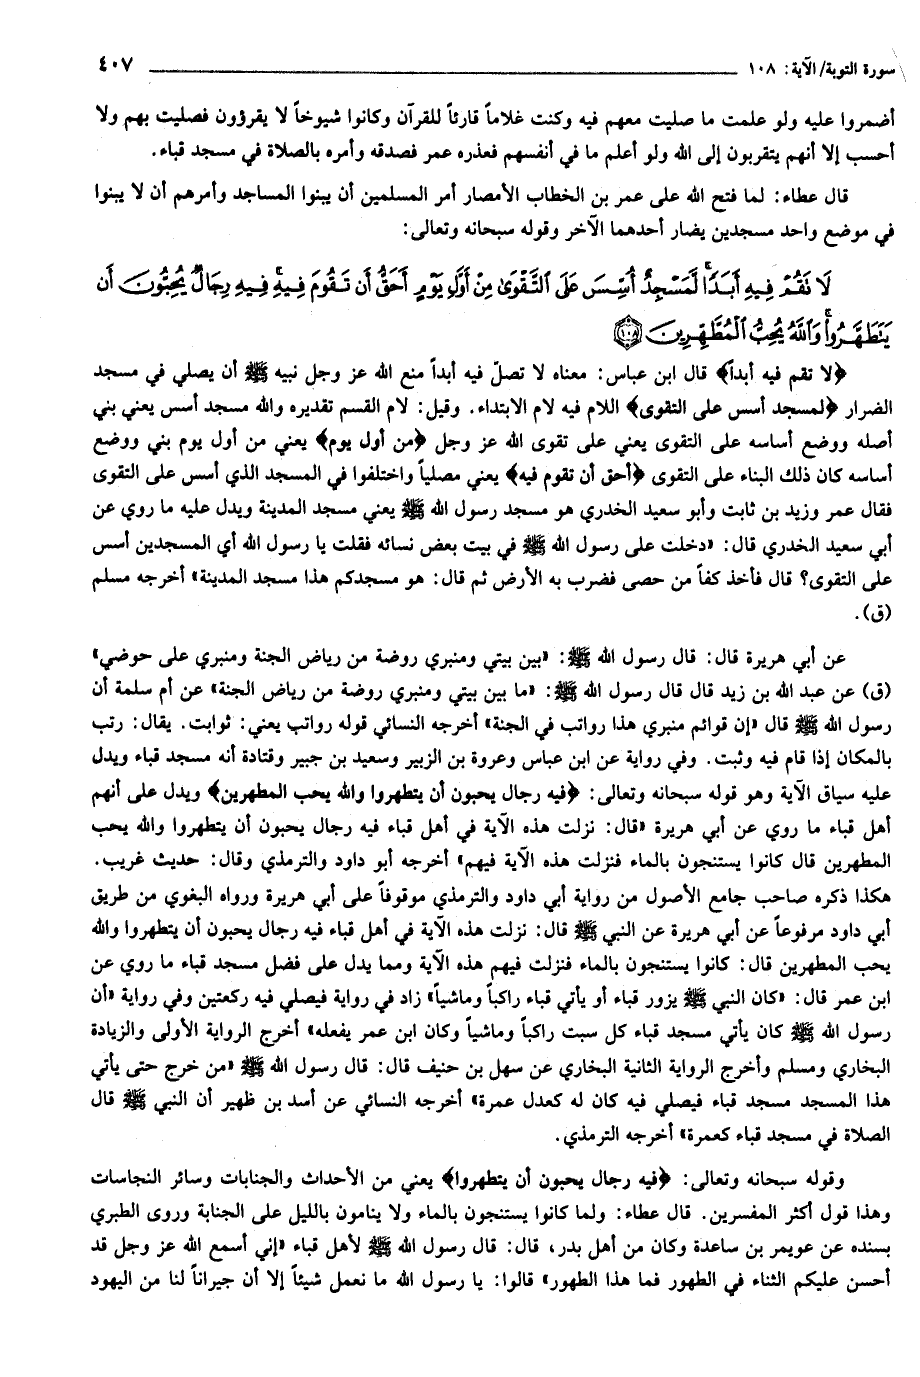 سورة التوبة/ الآية: ١٠٨ ٤٠٧
أضمروا عليه ولو علمت ما صليت معهم فيه وكنت غلاماً قارئاً للقرآن وكانوا شيوخاً لا يقرؤون فصليت بهم ولا
أحسب إلا أنهم يتقربون إلى الله ولو أعلم ما في أنفسهم فعذره عمر فصدقه وأمره بالصلاة في مسجد قباء.
قال عطاء: لما فتح الله على عمر بن الخطاب الأمصار أمر المسلمين أن يبنوا المساجد وأمرهم أن لا يبنوا
في موضع واحد مسجدين يضار أحدهما الآخر وقوله سبحانه وتعالى:
لَا نَقُمْ فِيهِ أَبَدًا لَّمَسْجِدٌ أُسِّسَ عَلَى التَّقْوَىٰ مِنْ أَوَّلِ يَوْمٍ أَحَقُّ أَن تَقُومَ فِيهِ فِيهِ رِجَالٌ يُحِبُّونَ أَن
يَتَطَهَّرُوا وَاللَّهُ يُحِبُّ الْمُطَّهِّرِينَ ١٠٨
﴿لا تقم فيه أبداً﴾ قال ابن عباس: معناه لا تصلّ فيه أبداً منع الله عز وجل نبيه ﷺ أن يصلي في مسجد
الضرار ﴿لمسجد أسس على التقوى﴾ اللام فيه لام الابتداء. وقيل: لام القسم تقديره والله مسجد أسس يعني بني
أصله ووضع أساسه على التقوى يعني على تقوى الله عز وجل ﴿من أول يوم﴾ يعني من أول يوم بني ووضع
أساسه كان ذلك البناء على التقوى ﴿أحق أن تقوم فيه﴾ يعني مصلياً واختلفوا في المسجد الذي أسس على التقوى
فقال عمر وزيد بن ثابت وأبو سعيد الخدري هو مسجد رسول الله ﷺ يعني مسجد المدينة ويدل عليه ما روي عن
أبي سعيد الخدري قال: «دخلت على رسول الله ﷺ في بيت بعض نسائه فقلت يا رسول الله أي المسجدين أسس
على التقوى؟ قال فأخذ كفاً من حصى فضرب به الأرض ثم قال: هو مسجدكم هذا مسجد المدينة» أخرجه مسلم
(ق).
عن أبي هريرة قال: قال رسول الله ﷺ: «بين بيتي ومنبري روضة من رياض الجنة ومنبري على حوضي»
(ق) عن عبد الله بن زيد قال قال رسول الله ﷺ: «ما بين بيتي ومنبري روضة من رياض الجنة» عن أم سلمة أن
رسول الله ﷺ قال «إن قوائم منبري هذا رواتب في الجنة» أخرجه النسائي قوله رواتب يعني: ثوابت. يقال: رتب
بالمكان إذا قام فيه وثبت. وفي رواية عن ابن عباس وعروة بن الزبير وسعيد بن جبير وقتادة أنه مسجد قباء ويدل
عليه سياق الآية وهو قوله سبحانه وتعالى: ﴿فيه رجال يحبون أن يتطهروا والله يحب المطهرين﴾ ويدل على أنهم
أهل قباء ما روي عن أبي هريرة «قال: نزلت هذه الآية في أهل قباء فيه رجال يحبون أن يتطهروا والله يحب
المطهرين قال كانوا يستنجون بالماء فنزلت هذه الآية فيهم» أخرجه أبو داود والترمذي وقال: حديث غريب.
هكذا ذكره صاحب جامع الأصول من رواية أبي داود والترمذي موقوفاً على أبي هريرة ورواه البغوي من طريق
أبي داود مرفوعاً عن أبي هريرة عن النبي ﷺ قال: نزلت هذه الآية في أهل قباء فيه رجال يحبون أن يتطهروا والله
يحب المطهرين قال: كانوا يستنجون بالماء فنزلت فيهم هذه الآية ومما يدل على فضل مسجد قباء ما روي عن
ابن عمر قال: «كان النبي ﷺ يزور قباء أو يأتي قباء راكباً وماشياً» زاد في رواية فيصلي فيه ركعتين وفي رواية «أن
رسول الله ﷺ كان يأتي مسجد قباء كل سبت راكباً وماشياً وكان ابن عمر يفعله» أخرج الرواية الأولى والزيادة
البخاري ومسلم وأخرج الرواية الثانية البخاري عن سهل بن حنيف قال: قال رسول الله ﷺ «من خرج حتى يأتي
هذا المسجد مسجد قباء فيصلي فيه كان له كعدل عمرة» أخرجه النسائي عن أسد بن ظهير أن النبي ﷺ قال
الصلاة في مسجد قباء كعمرة» أخرجه الترمذي.
وقوله سبحانه وتعالى: ﴿فيه رجال يحبون أن يتطهروا﴾ يعني من الأحداث والجنابات وسائر النجاسات
وهذا قول أكثر المفسرين. قال عطاء: ولما كانوا يستنجون بالماء ولا ينامون بالليل على الجنابة وروى الطبري
بسنده عن عويمر بن ساعدة وكان من أهل بدر، قال: قال رسول الله ﷺ لأهل قباء «إني أسمع الله عز وجل قد
أحسن عليكم الثناء في الطهور فما هذا الطهور» قالوا: يا رسول الله ما نعمل شيئاً إلا أن جيراناً لنا من اليهود